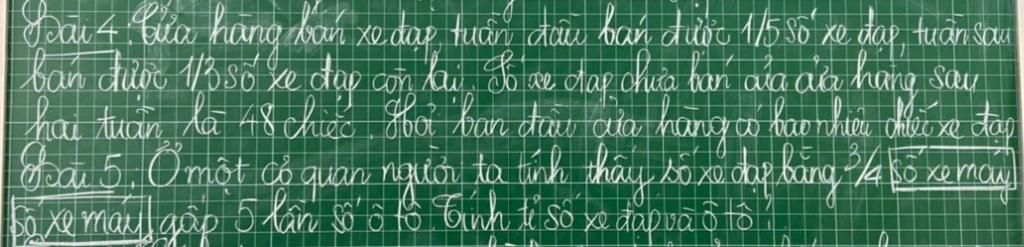 Bài 4. Cửa hàng bán xe đạp, tuần đầu bán được 1/5 số xe đạp, tuần sau
bán được 1/3 số xe đạp còn lại. Số xe đạp chưa bán của cửa hàng sau
hai tuần là 48 chiếc. Hỏi ban đầu cửa hàng có bao nhiêu chiếc xe đạp
Bài 5. Ở một cơ quan người ta tính thấy số xe đạp bằng 3/4 số xe máy
số xe máy gấp 5 lần số ô tô. Tính tỉ số xe đạp và ô tô?